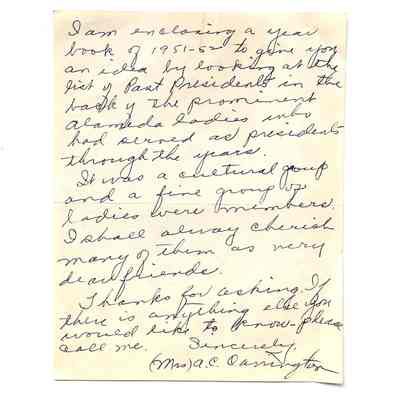 I am enclosing a year
book of 1951-52 to give you
an idea by looking at the
list of Past Presidents in the
back of the prominent
Alameda ladies who
had served as presidents
through the years.
It was a cultural group
and a fine group of
ladies were members.
I shall alway cherish
many of them as very
dear friends.
Thanks for asking. If
there is anything else you
would like to know - please
call me. Sincerely,
(Mrs) A.C.